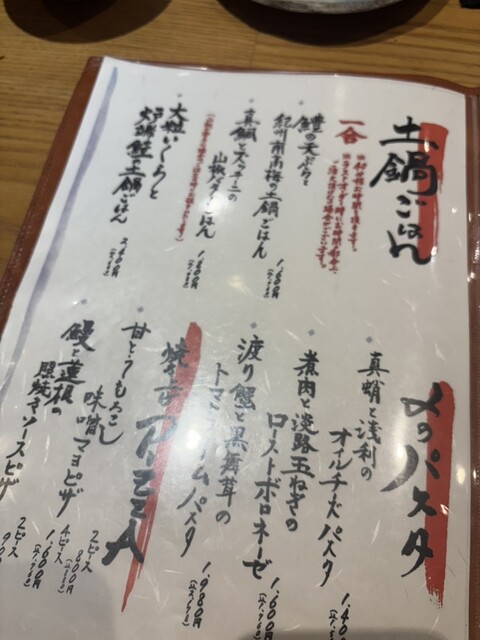 土鍋ごはん
一合
鱧の天ぷらと
紀州南高梅の土鍋ごはん
1,600円
真鯛とズッキーニの
山椒バターごはん
1,600円
大粒いくらと
炉端鮭の土鍋ごはん
〆のパスタ
真蛸と浅利の
オイルチドパスタ
煮肉と淡路玉ねぎの
ローストボロネーゼ
1,600円
渡り蟹と黒舞茸の
トマトクリームパスタ
1,980円
焼き立てPIZZA
甘とうもろこし
味噌マヨピザ
2ピース 800円
4ピース 1,600円
鰻と蓮根の
照焼きソースピザ
2ピース